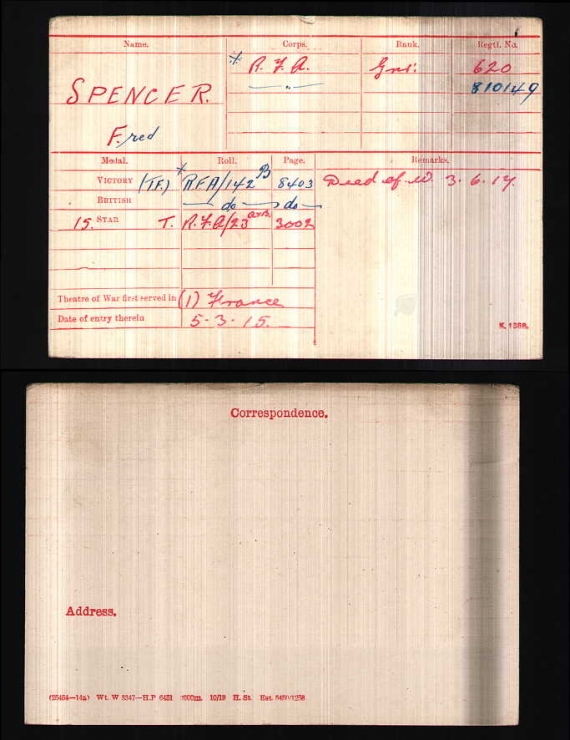 Name. Corps. Rank. Regtl. No.
* R.F.A. Gnr. 620
SPENCER. " 810149
Fred
Medal. Roll. Page. Remarks.
VICTORY (TF) * RFA/142 B 8403 Died of W 3.6.17.
BRITISH do do
15. STAR T. R.F.A/23 3002
Theatre of War first served in (1) France
Date of entry therein 5-3-15.
K. 1380.
Correspondence.
Address.
H. St.